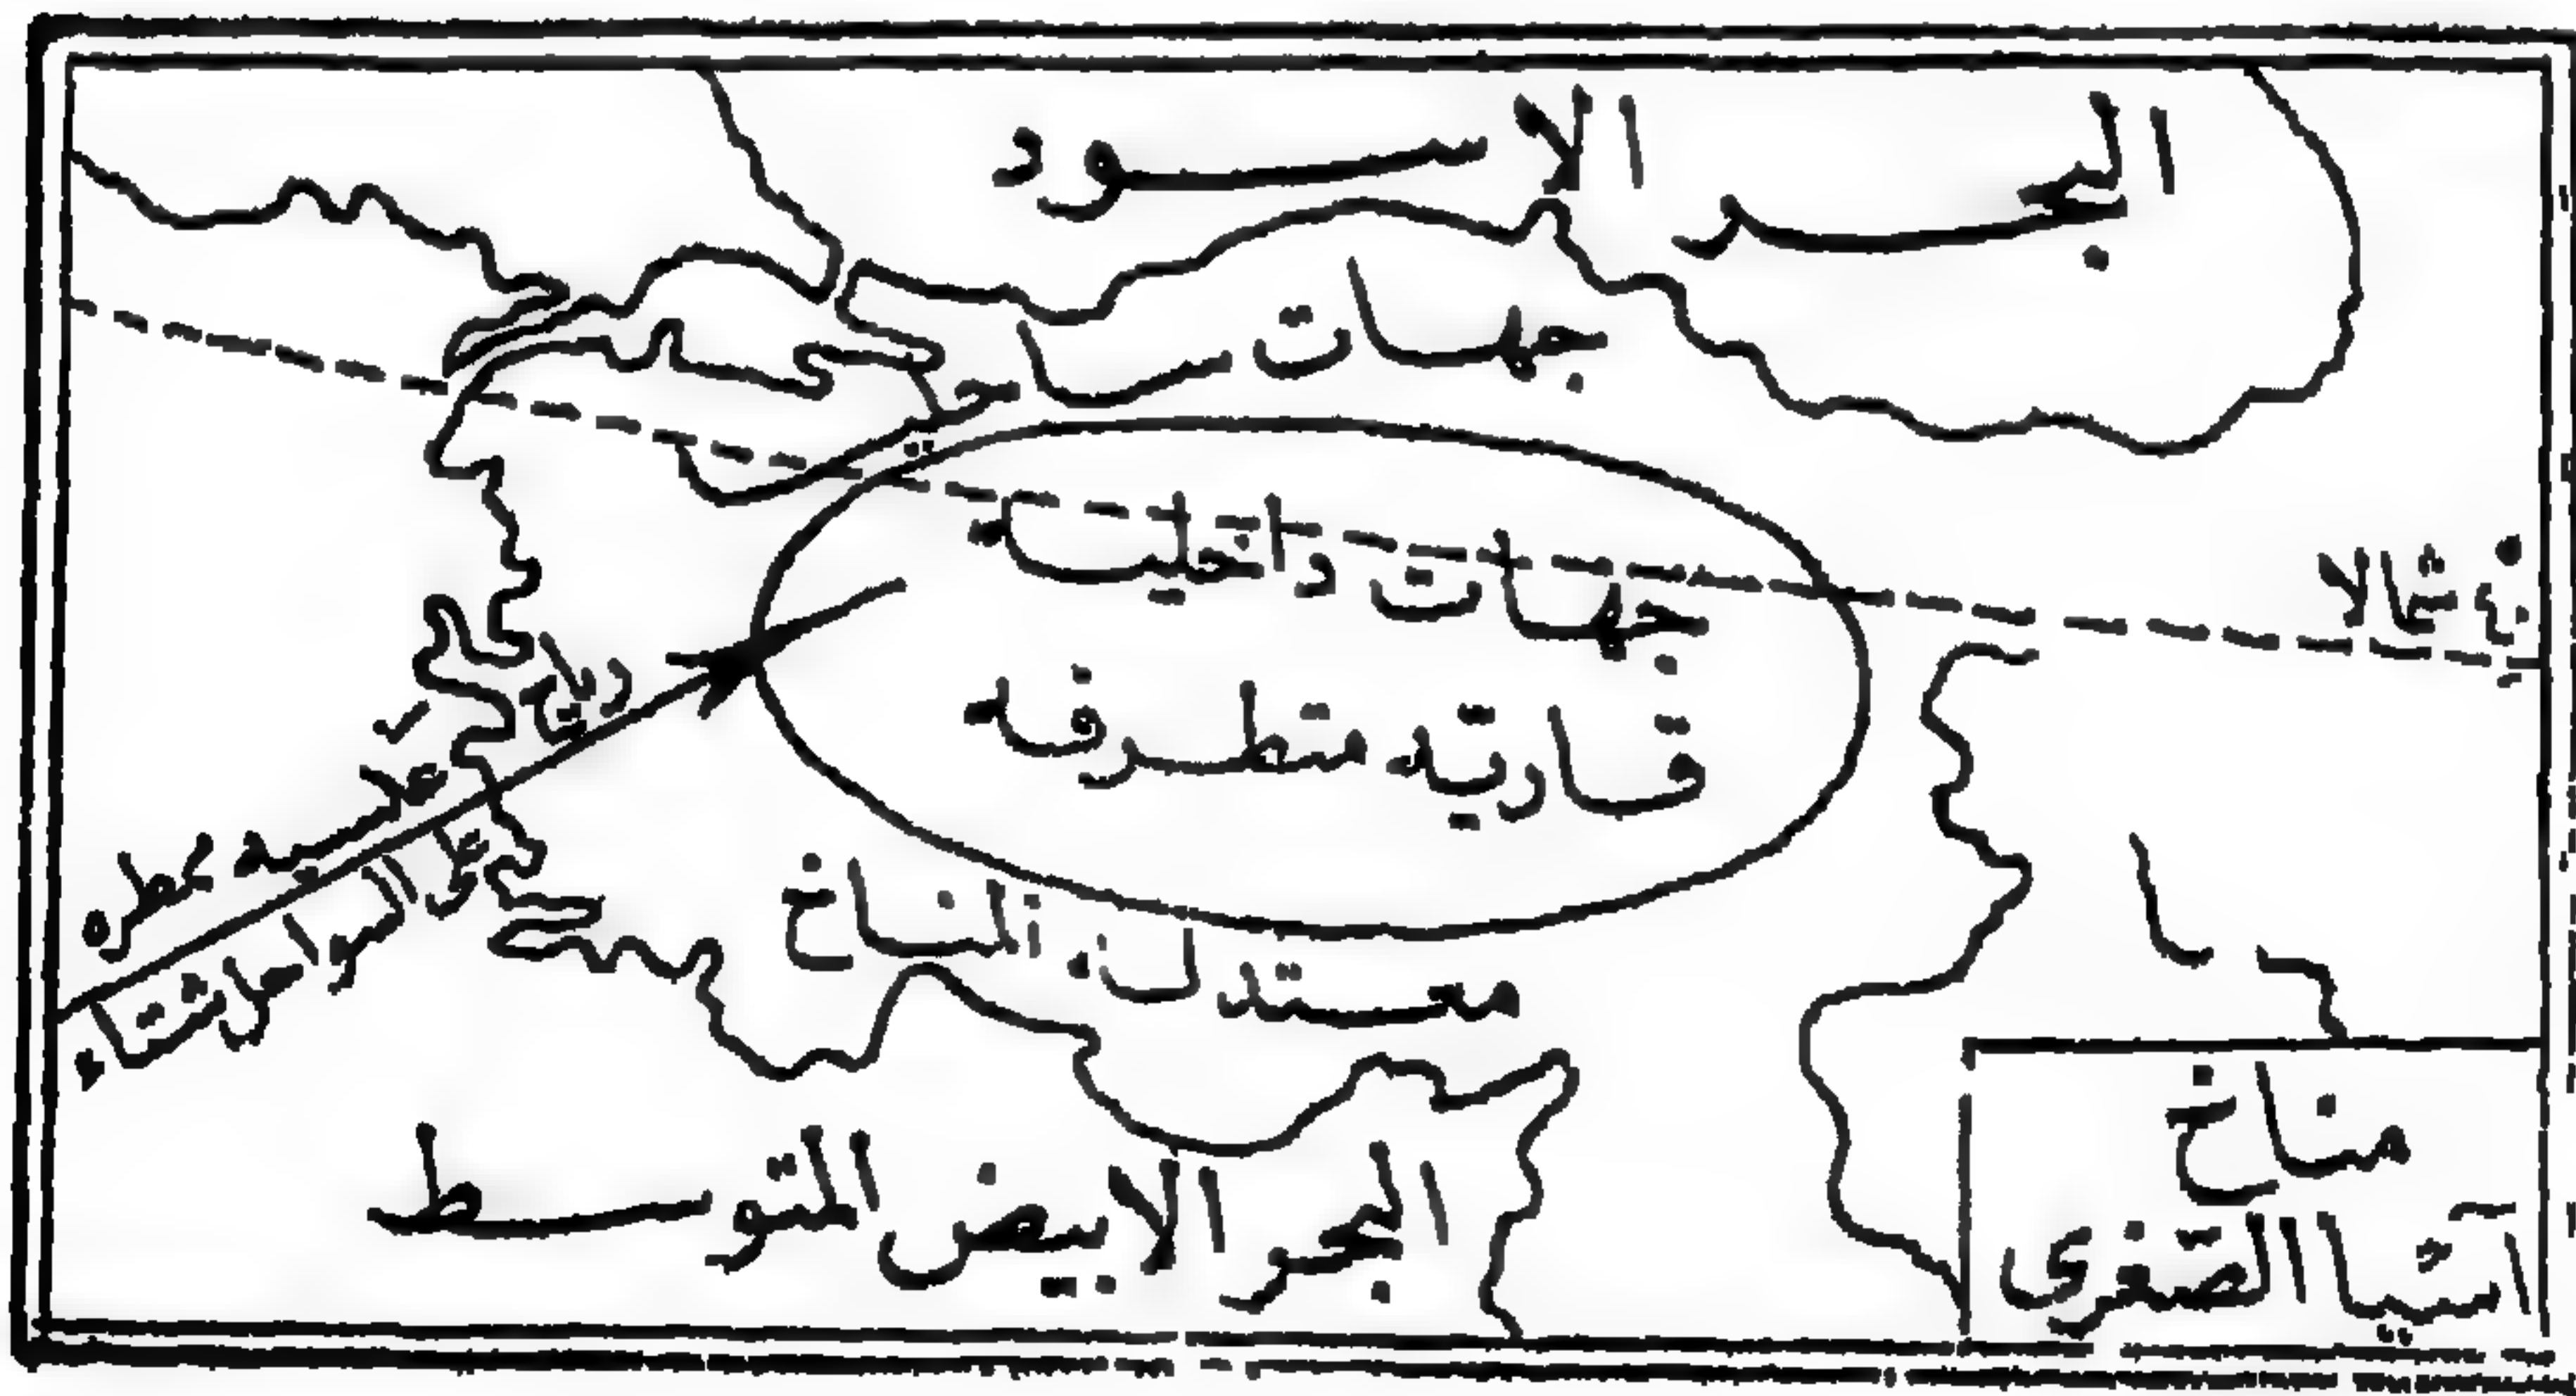 البحر الاسود
جهات ساحلية
شمالا
جهات داخلية
قارية متطرفه
رياح
عكسيه ممطره
على السواحل شتاء
معتدلة المناخ
البحر الابيض المتوسط
مناخ
آسيا الصغرى